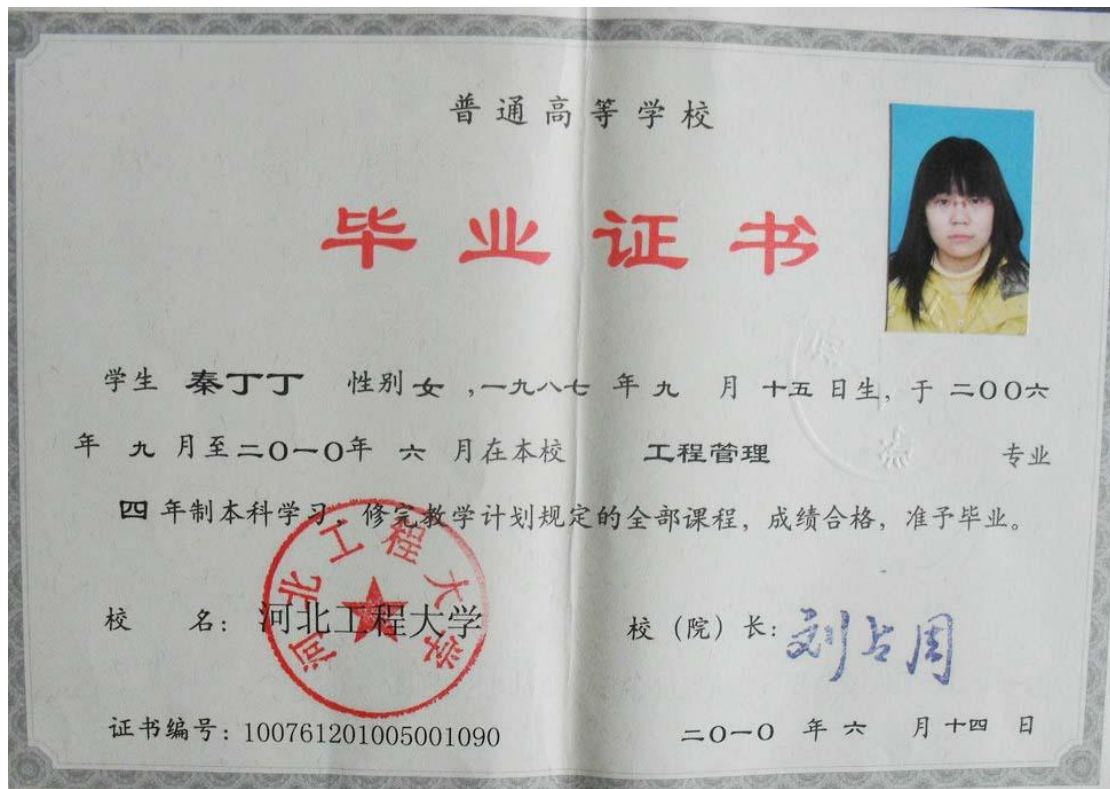 普通高等学校
毕业证书
学生 秦丁丁 性别 女 ,一九八七 年 九 月 十五 日生, 于 二00六
年 九 月至二0一0年 六 月在本校 工程管理 专业
四 年制本科学习, 修完教学计划规定的全部课程, 成绩合格, 准予毕业。
河北工程大学
校 名: 河北工程大学 校（院）长: 刘占周
证书编号: 100761201005001090 二0一0 年 六 月 十四 日